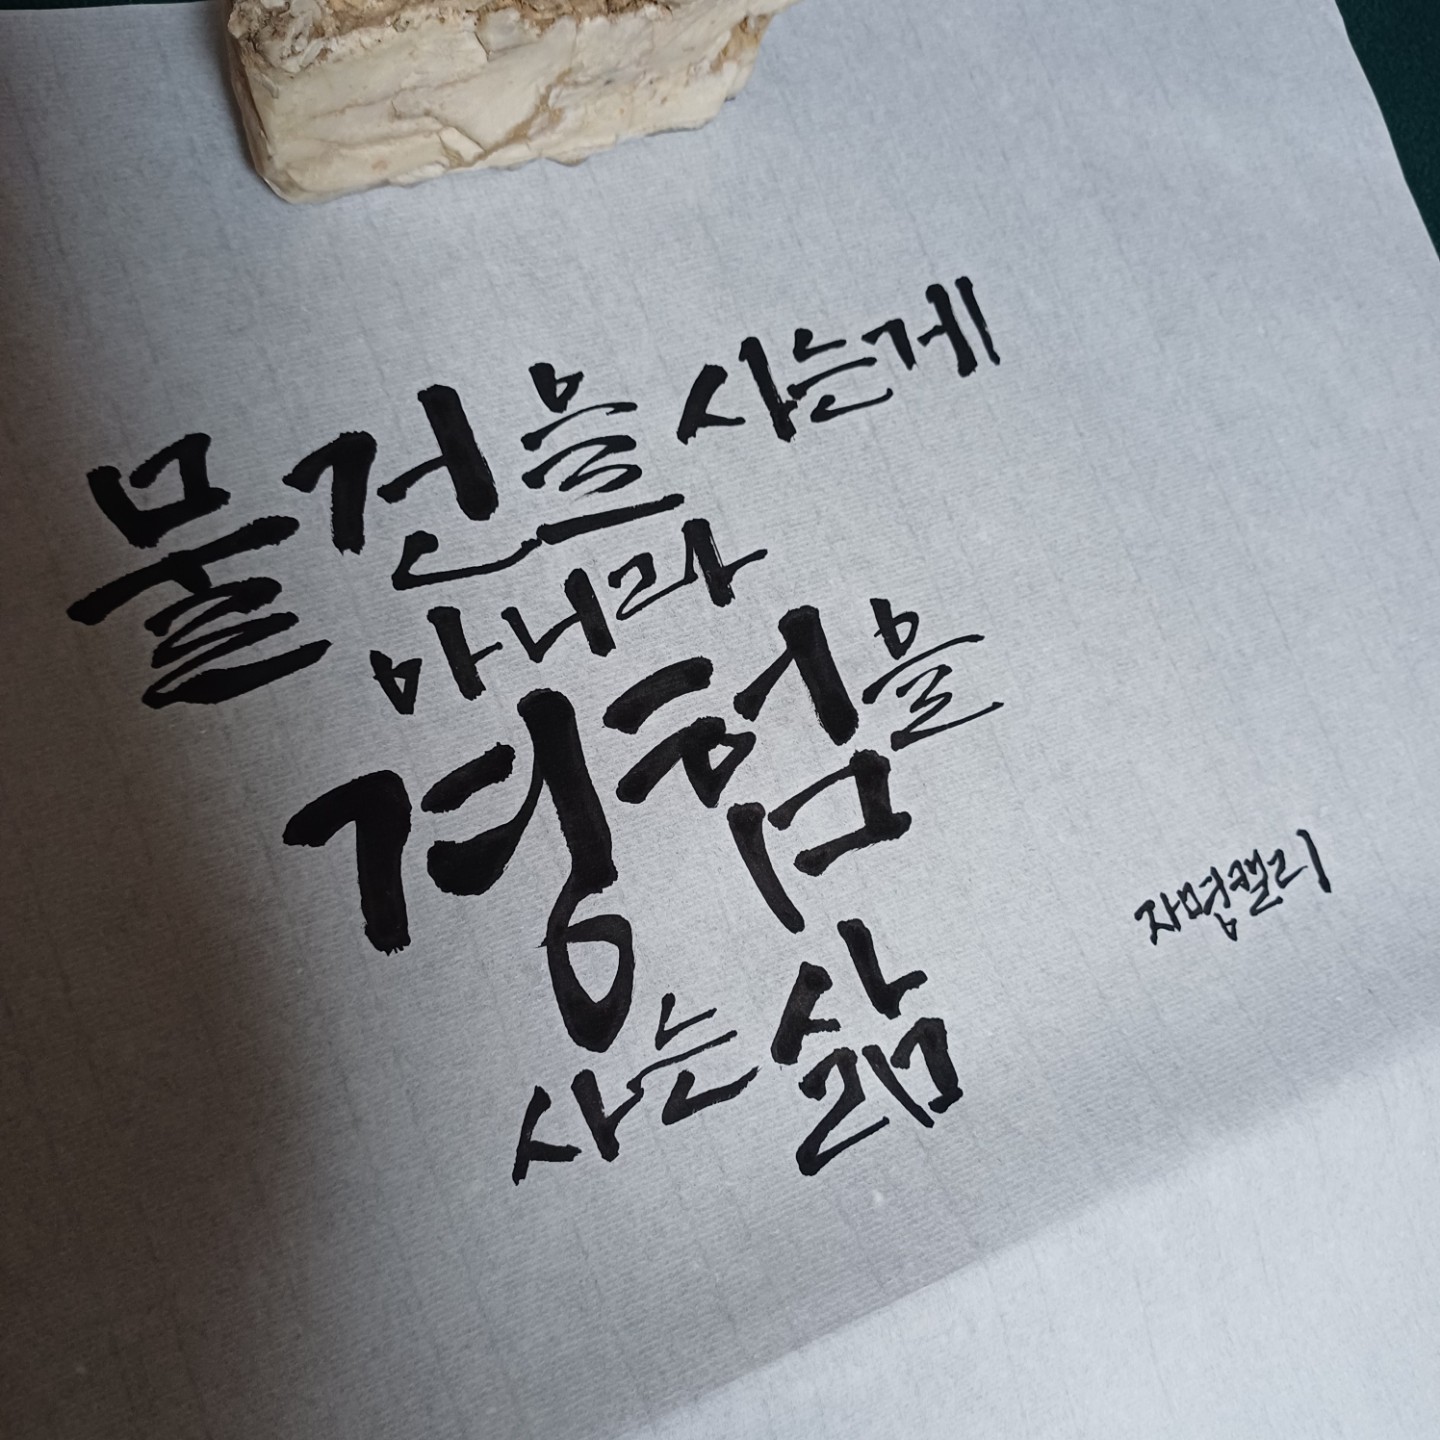 물건을 사는게
아니라
경험을
사는 삶
자명캘리